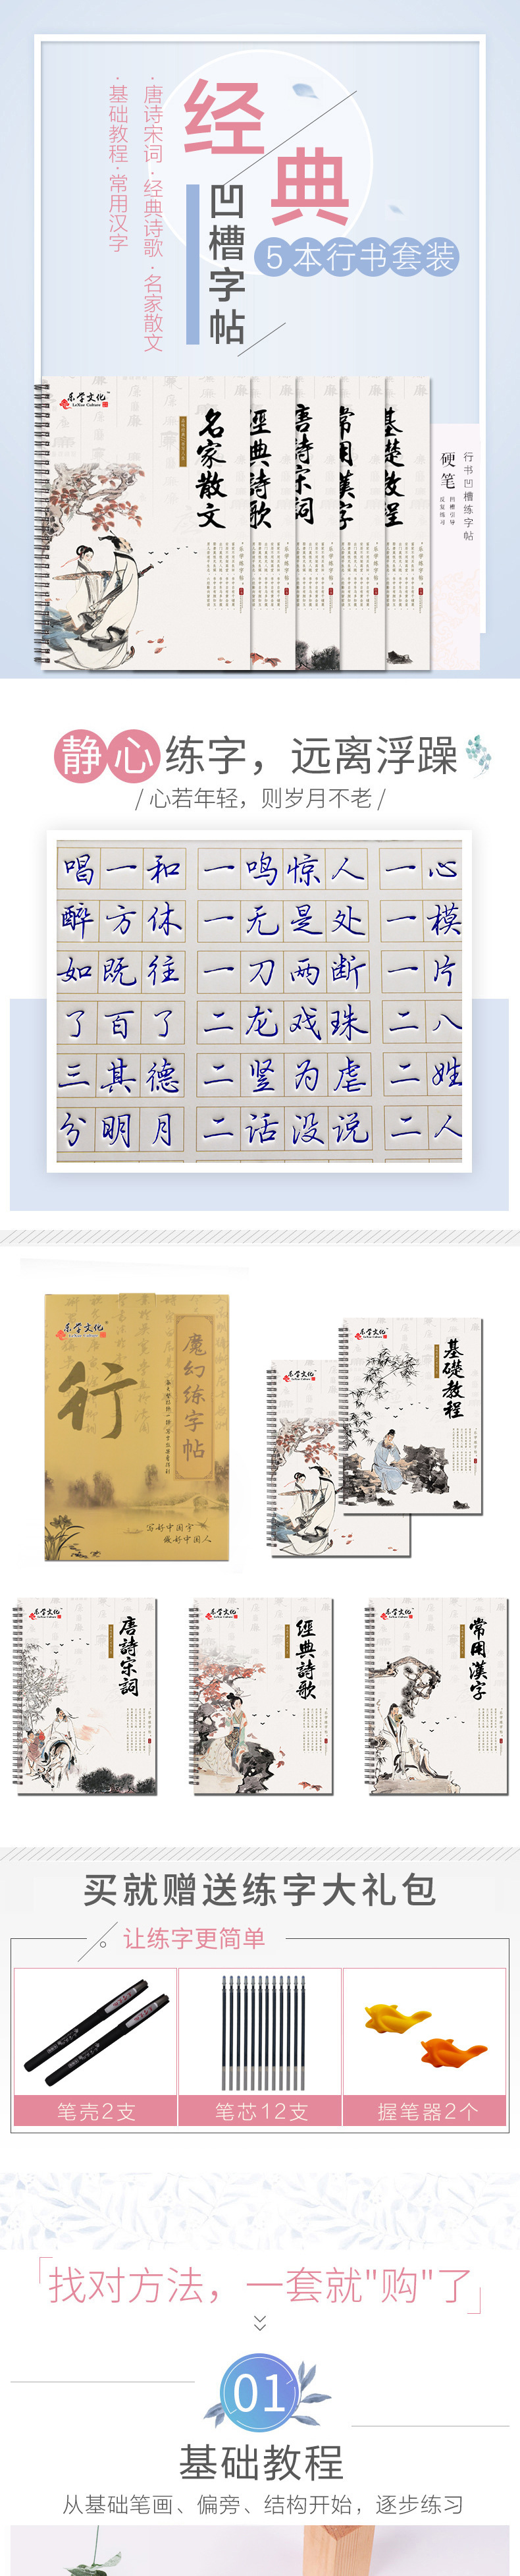 经典
·唐诗宋词·经典诗歌·名家散文
·基础教程·常用汉字
凹槽字帖
5本行书套装
乐学文化
LeXue Culture
名家散文
經典詩歌
唐詩宋詞
常用漢字
基礎教程
·乐学练字帖·
行书凹槽练字帖
硬笔
凹槽引导
反复练习
静心练字，远离浮躁
/ 心若年轻，则岁月不老 /
唱一和 一鸣惊人 一心
醉方休 一无是处 一模
如既往 一刀两断 一片
了百了 二龙戏珠 二八
三其德 二竖为虐 二姓
分明月 二话没说 二人
乐学文化
LeXue Culture
行
魔幻练字帖
写好中国字
做好中国人
乐学文化
乐学文化
基礎教程
乐学文化
唐詩宋詞
乐学文化
經典詩歌
乐学文化
常用漢字
买就赠送练字大礼包
让练字更简单
笔壳2支
笔芯12支
握笔器2个
找对方法，一套就"购"了
01
基础教程
从基础笔画、偏旁、结构开始，逐步练习